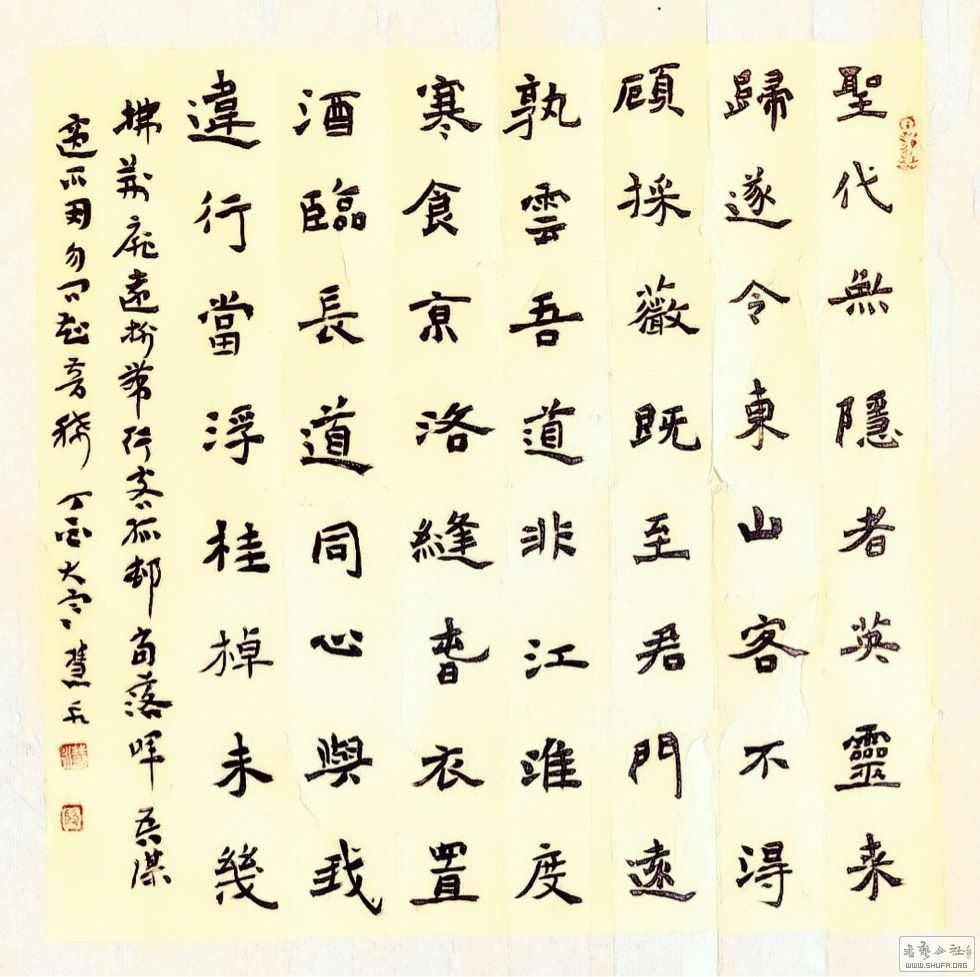 聖代無隱者英靈来
歸遂令東山客不得
顧採薇既至君門遠
孰雲吾道非江淮度
寒食亰洛縫旾衣置
酒臨長道同心與我
違行當浮桂棹未幾
拂荊扉遠樹帶行客孤邨當落暉吾謀
適不用勿謂知音稀 丁酉大寒
書藝公社
WWW.SHUFA.ORG